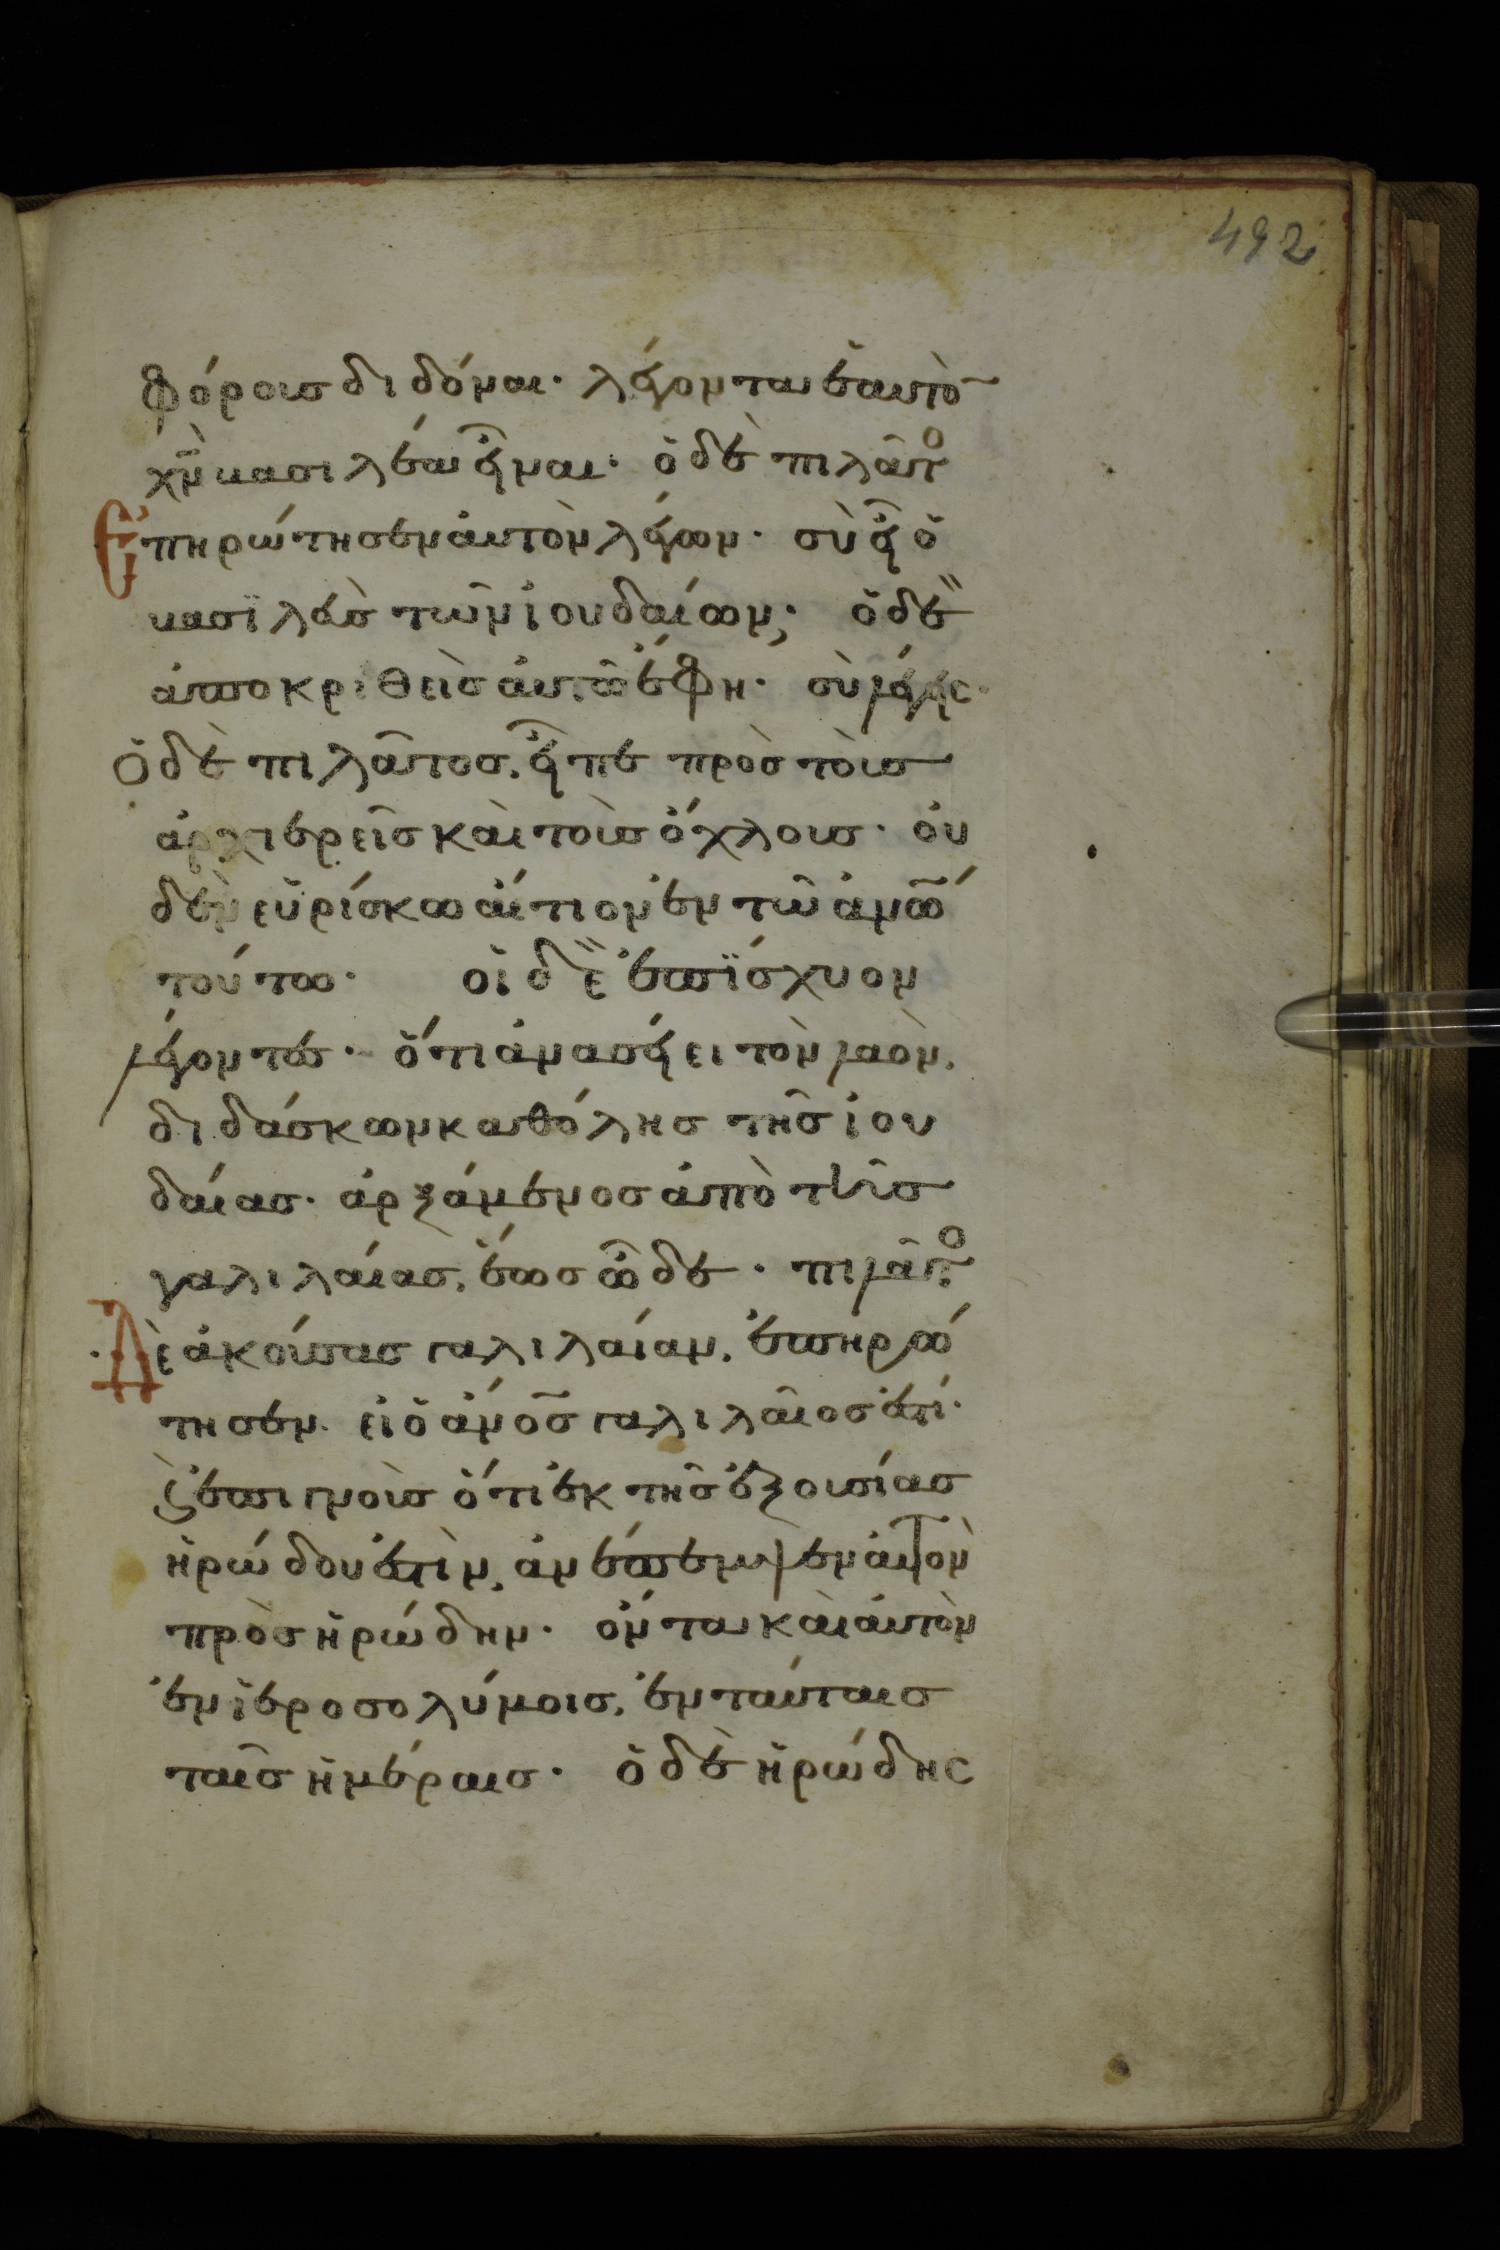 492
φόρους διδόναι· λέγοντα ἑαυτὸ
χν̅ βασιλέα εἶναι· ὁ δὲ πιλᾶτο
Ἐπηρώτησεν αὐτὸν λέγων· σὺ εἶ ὁ
βασϊλεὺς τῶν ἰουδαίων; ὁ δὲ
ἀποκριθεὶς αὐτῶ ἔφη· σὺ λέγεις·
Ὁ δὲ πιλᾶτος, εἶπε πρὸς τοὺς
ἀρχιερεῖς καὶ τοὺς ὄχλους· οὐ
δὲν εὑρίσκω αἴτιον ἐν τῶ ἀνω̅
τούτω· οἱ δὲ ἐπΐσχυον
λέγοντες· ὅτι ἀνασείει τὸν λαὸν,
διδάσκων καθόλης τῆς ἰου
δαίας· ἀρξάμενος ἀπὸ τῆς
γαλιλαίας, ἕως ὧδε· πιλᾶτο
Δὲ ἀκούσας γαλιλαίαν, ἐπηρώ
τησεν· εἰ ὁ ἀνο̅ς γαλιλαῖος ἐστί·
ϛ ἐπιγνοὺς ὅτι ἐκ τῆς ἐξουσίας
ἡρώδου ἐστὶν, ἀνέπεμψεν αὐτὸν
πρὸς ἡρώδην· ὄντα καὶ αὐτὸν
ἐν ἱεροσολύμοις, ἐν ταύταις
ταῖς ἡμέραις· ὁ δὲ ἡρώδης